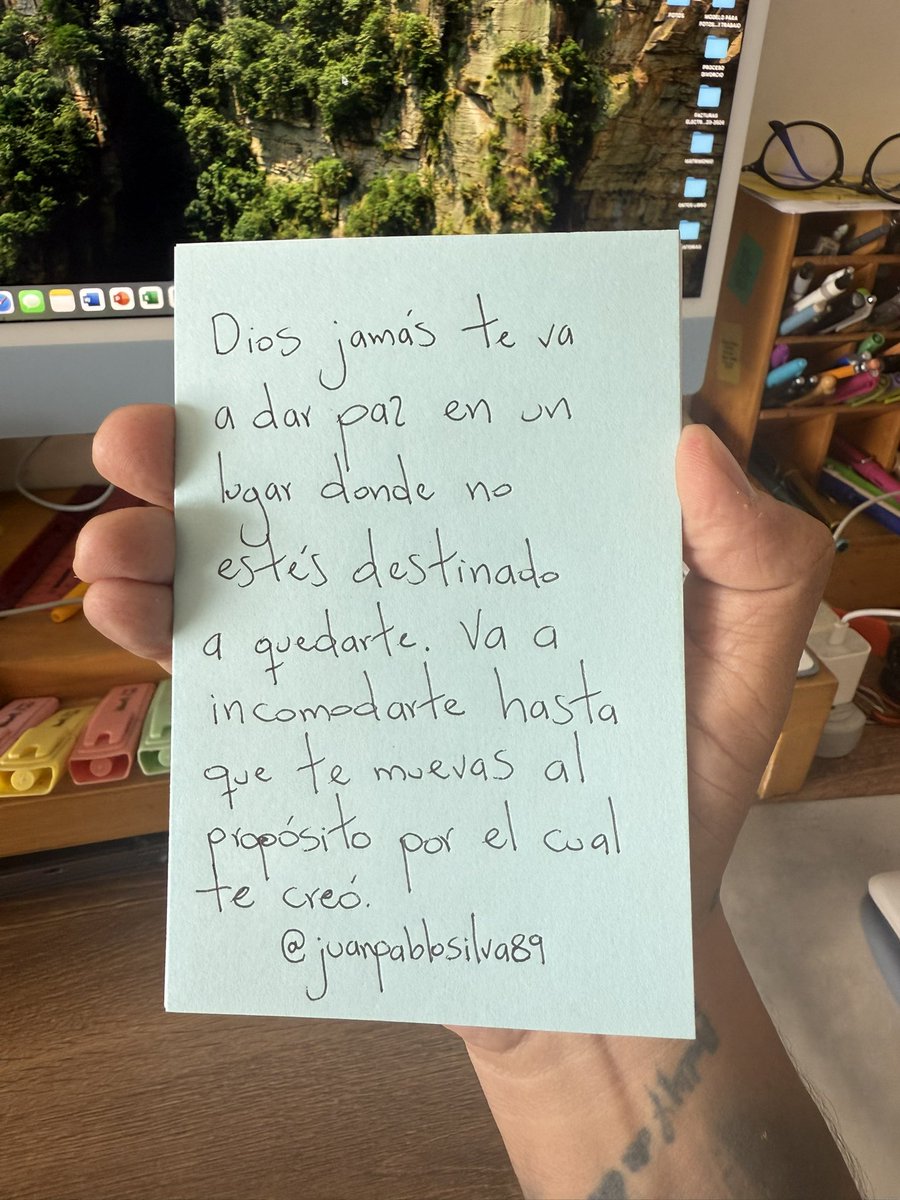 FOTOS
MODELO PARA
PROCESO
DIVORCIO
FACTURAS
MATRIMONIO
Dios jamás te va
a dar paz en un
lugar donde no
estés destinado
a quedarte. Va a
incomodarte hasta
que te muevas al
propósito por el cual
te creó.
@juanpablosilva89